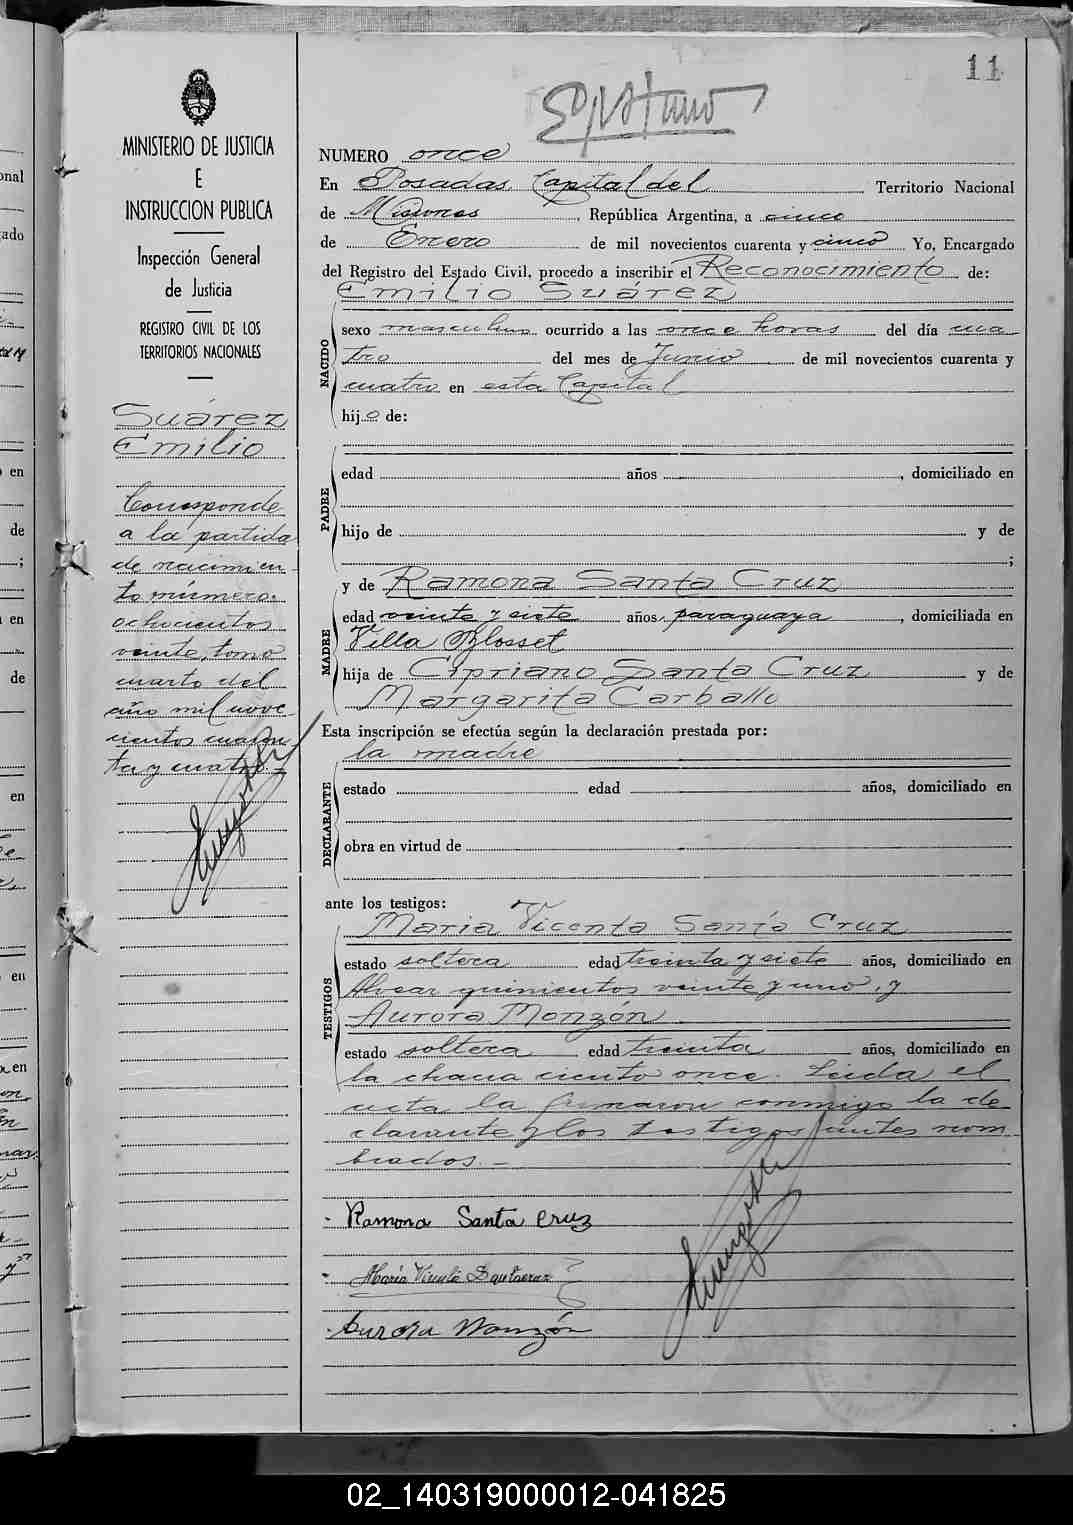 11
MINISTERIO DE JUSTICIA
E
INSTRUCCION PUBLICA
Inspección General
de Justicia
REGISTRO CIVIL DE LOS
TERRITORIOS NACIONALES
Suárez
Emilio
Corresponde
a la partida
de nacimien
to número
ochocientos
veinte, tomo
cuarto del
año mil nove
cientos cuaren
ta y cuatro.-
NUMERO once
En Posadas, Capital del Territorio Nacional
de Misiones, República Argentina, a cinco
de Enero de mil novecientos cuarenta y cinco Yo, Encargado
del Registro del Estado Civil, procedo a inscribir el Reconocimiento de:
Emilio Suárez
NACIDO
sexo masculino ocurrido a las once horas del día cua
tro del mes de Junio de mil novecientos cuarenta y
cuatro en esta Capital
hijo de:
PADRE
edad años , domiciliado en
hijo de y de
;
y de Ramona Santa Cruz
MADRE
edad veinte y siete años, paraguaya, domiciliada en
Villa Blosset
hija de Cipriano Santa Cruz y de
Margarita Carballo
Esta inscripción se efectúa según la declaración prestada por:
la madre
DECLARANTE
estado edad años, domiciliado en
obra en virtud de
ante los testigos:
Maria Vicenta Santa Cruz
TESTIGOS
estado soltera edad treinta y siete años, domiciliado en
Alvear quinientos veinte y uno, y
Aurora Monzón
estado soltera edad treinta años, domiciliado en
la chacra ciento once. Leida el
acta la firmaron conmigo la de
clarante y los testigos antes nom
brados.-
Ramona Santa Cruz
Maria
Aurora Monzón
onal
ado
en
de
;
en
de
en
en
en
02_140319000012-041825